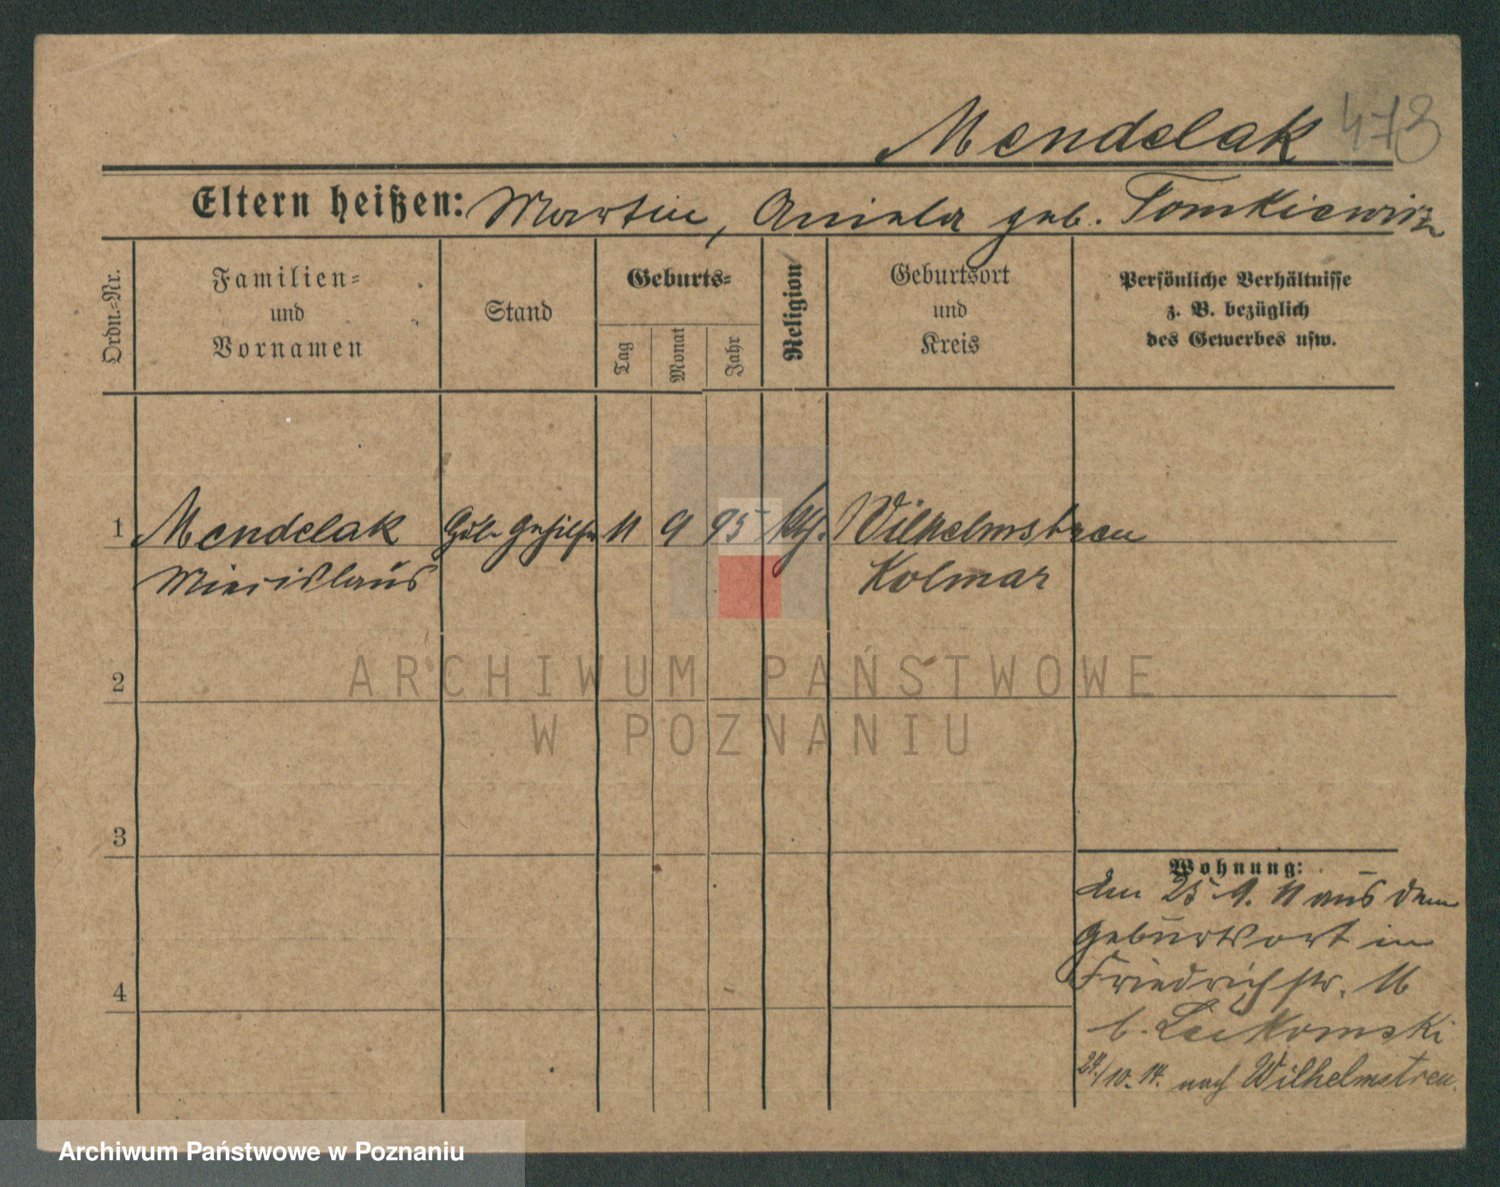 Mendelak 473
Eltern heißen: Martin, Aniela geb. Tomkiewicz
Ordn.-Nr.
Familien-
und
Vornamen
Stand
Geburts-
Tag
Monat
Jahr
Religion
Geburtsort
und
Kreis
Persönliche Verhältnisse
z. B. bezüglich
des Gewerbes usw.
1 Mendelak 11 9 95 kth. Wilhelmstreu
Miecislaus Kolmar
2
3
4
Wohnung:
den 25 9. 11 aus dem
Geburtsort in
Friedrichstr. 16
b.
24./10. 14. nach Wilhelmstreu.
ARCHIWUM PAŃSTWOWE
W POZNANIU
Archiwum Państwowe w Poznaniu